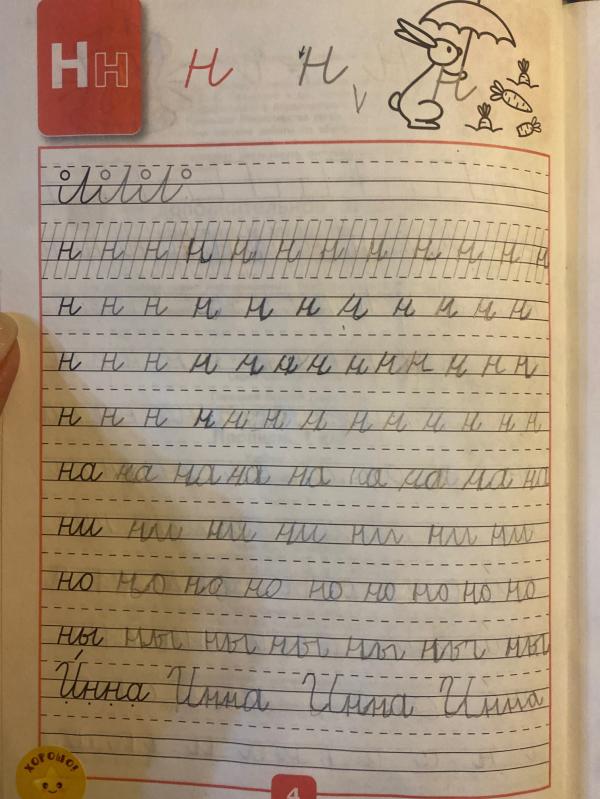 Н н н н н
н н н н н н н н н н н н
н н н н н н н н н н н
н н н н н н н н н н н н н
н н н н н н н н н н н н
на на на на на на на на на
ни ни ни ни ни ни ни
но но но но но но но но но
ны ны ны ны ны ны ны
И́нна Инна Инна Инна
ХОРОШО!
4